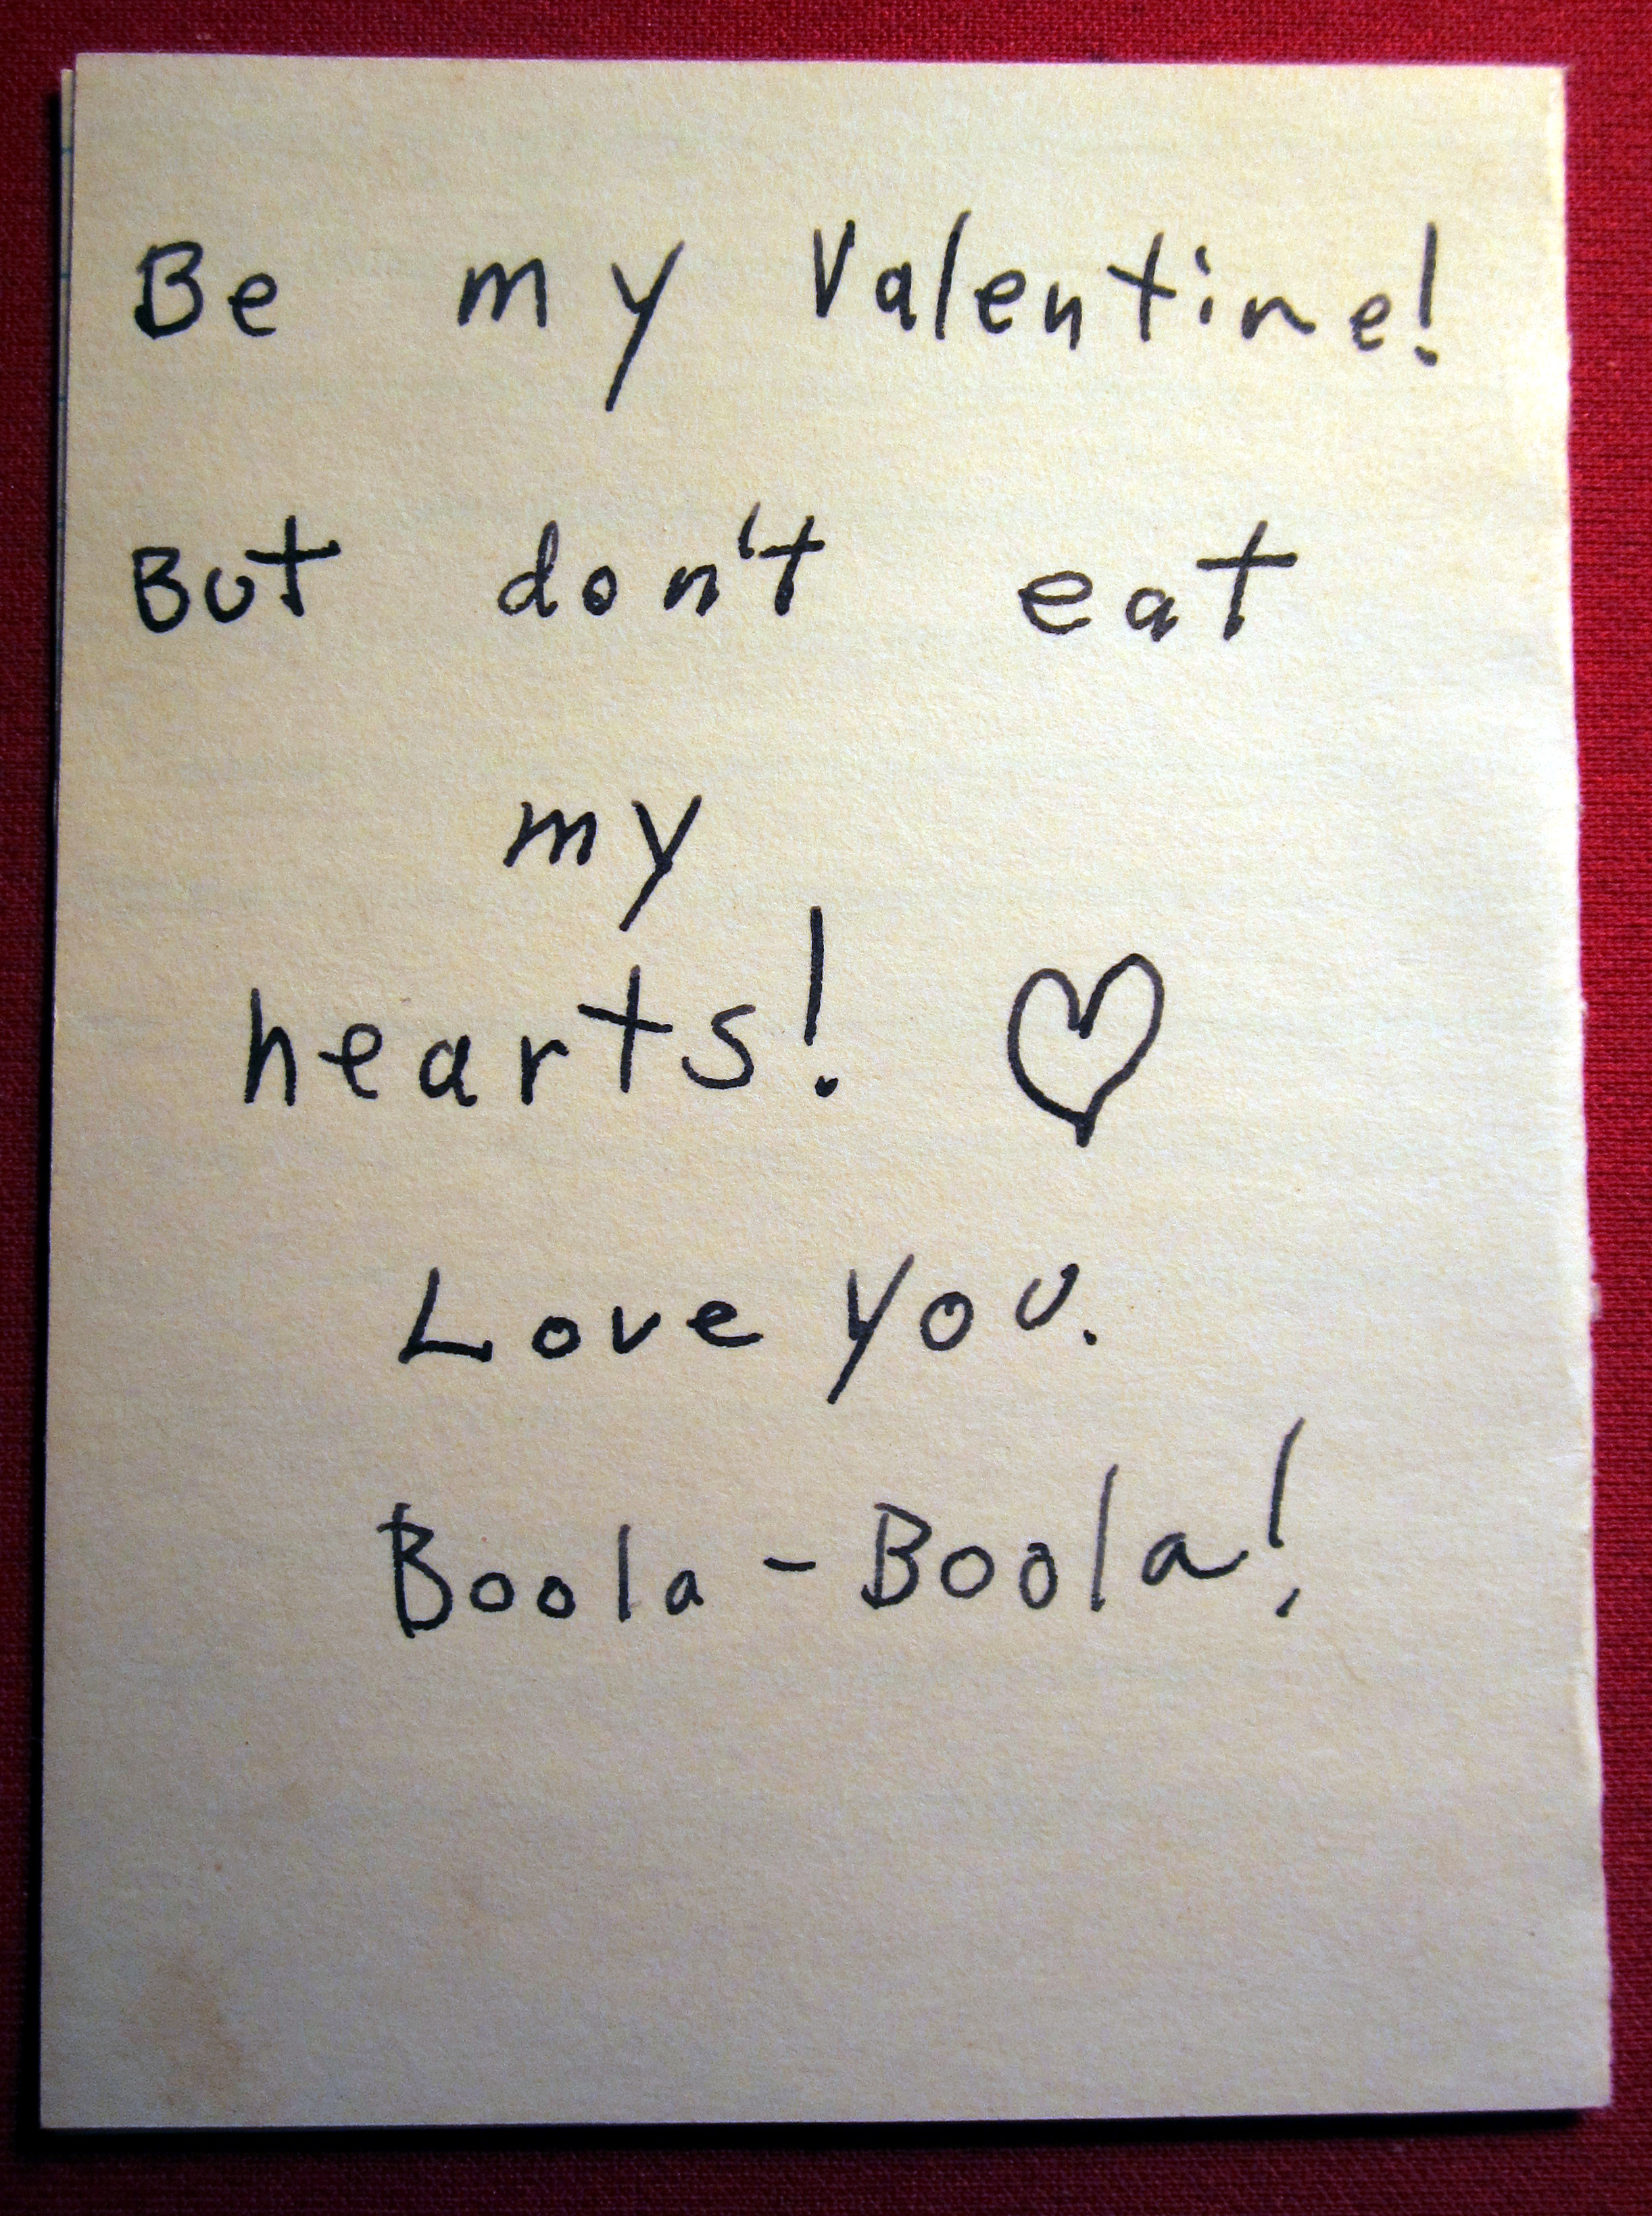 Be my Valentine!
But don't eat
my
hearts! ♡
Love you.
Boola-Boola!